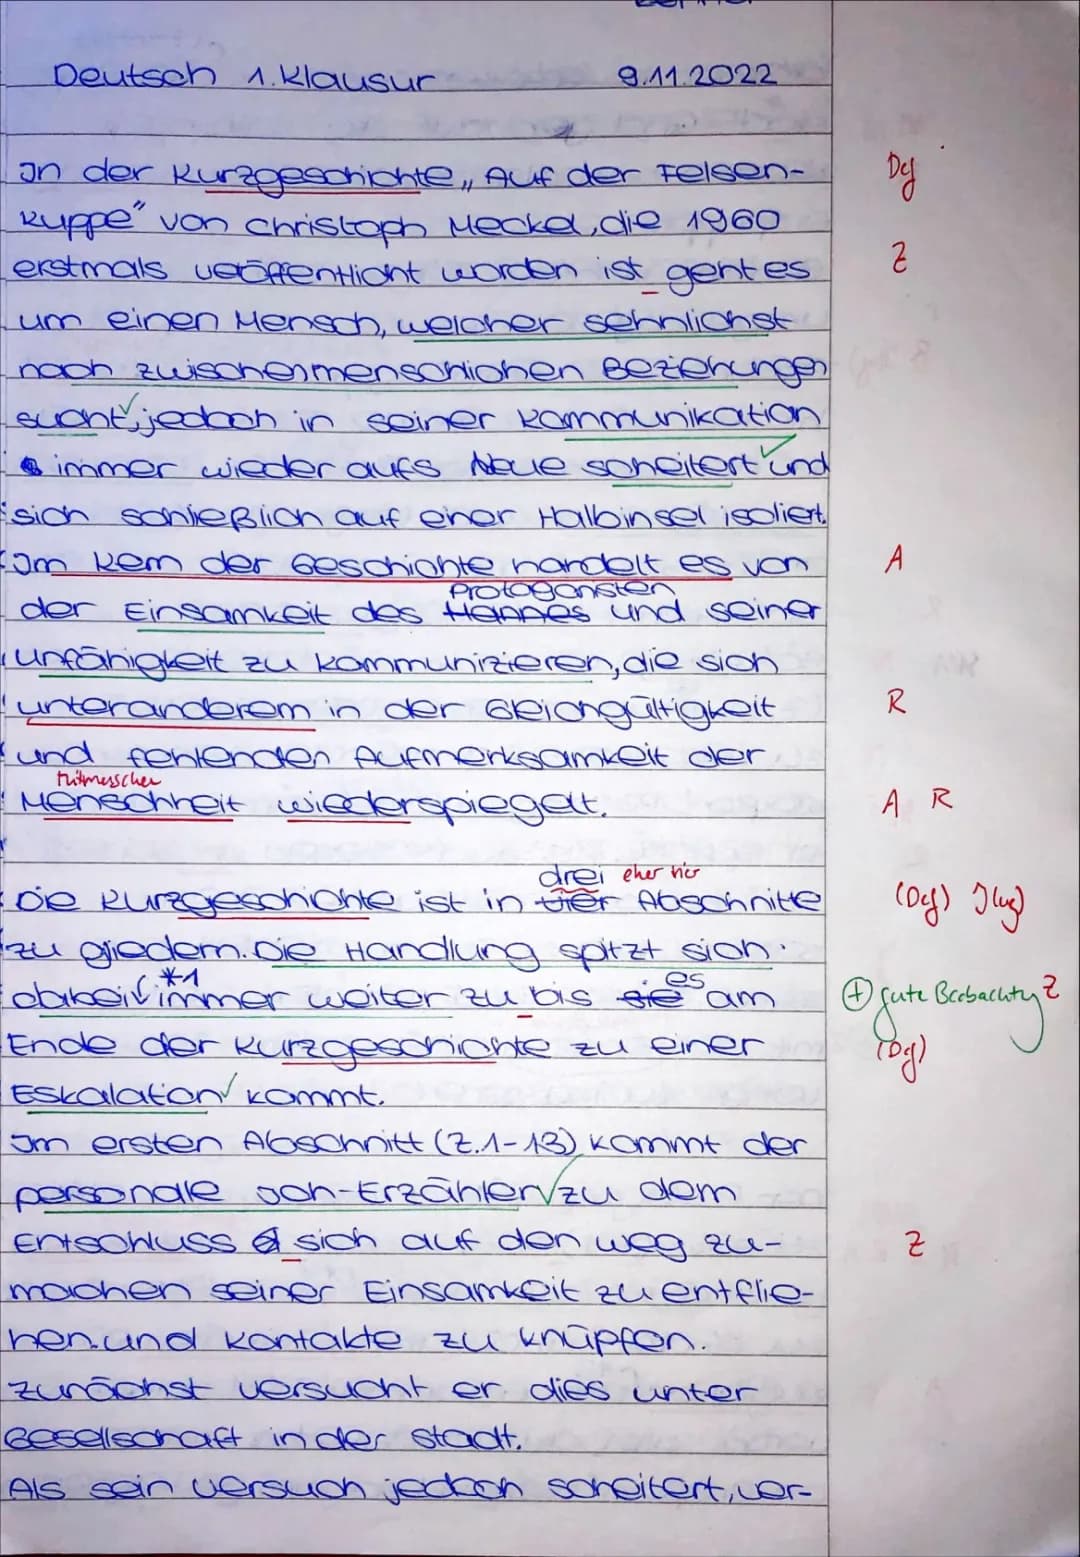 Deutsch 1. Klausur 9.11.2022
In der Kurzgeschichte „Auf der Felsen- Dg
kuppe“ von Christoph Meckel, die 1960
erstmals veröffentlicht worden ist geht es Z
um einen Mensch, welcher sehnlichst
nach zwischenmenschlichen Beziehungen
sucht, jedoch in seiner Kommunikation
immer wieder aufs Neue scheitert und
sich schießlich auf einer Halbinsel isoliert.
Im Kern der Geschichte handelt es von A
Protagonsten
der Einsamkeit des Hannes und seiner
Unfähigkeit zu kommunizieren, die sich
unteranderem in der Gleichgültigkeit R
und fehlenden Aufmerksamkeit der
Mitmenschen
Menschheit wiederspiegelt. A R
drei eher vier
Die Kurzgeschichte ist in vier Abschnitte (Dg)
zu gliedern. Die Handlung spitzt sich
*1 es
dabei immer weiter zu bis sie am + gute Beobachtung Z
Ende der Kurzgeschichte zu einer (Dg)
Eskalation kommt.
Im ersten Abschnitt (Z.1-13) kommt der
personale Ich-Erzähler zu dem
Entschluss sich auf den weg zu- Z
machen seiner Einsamkeit zu entflie-
hen und Kontakte zu knüpfen.
Zunächst versucht er dies unter
Gesellschaft in der Stadt.
Als sein Versuch jedoch scheitert, ver-